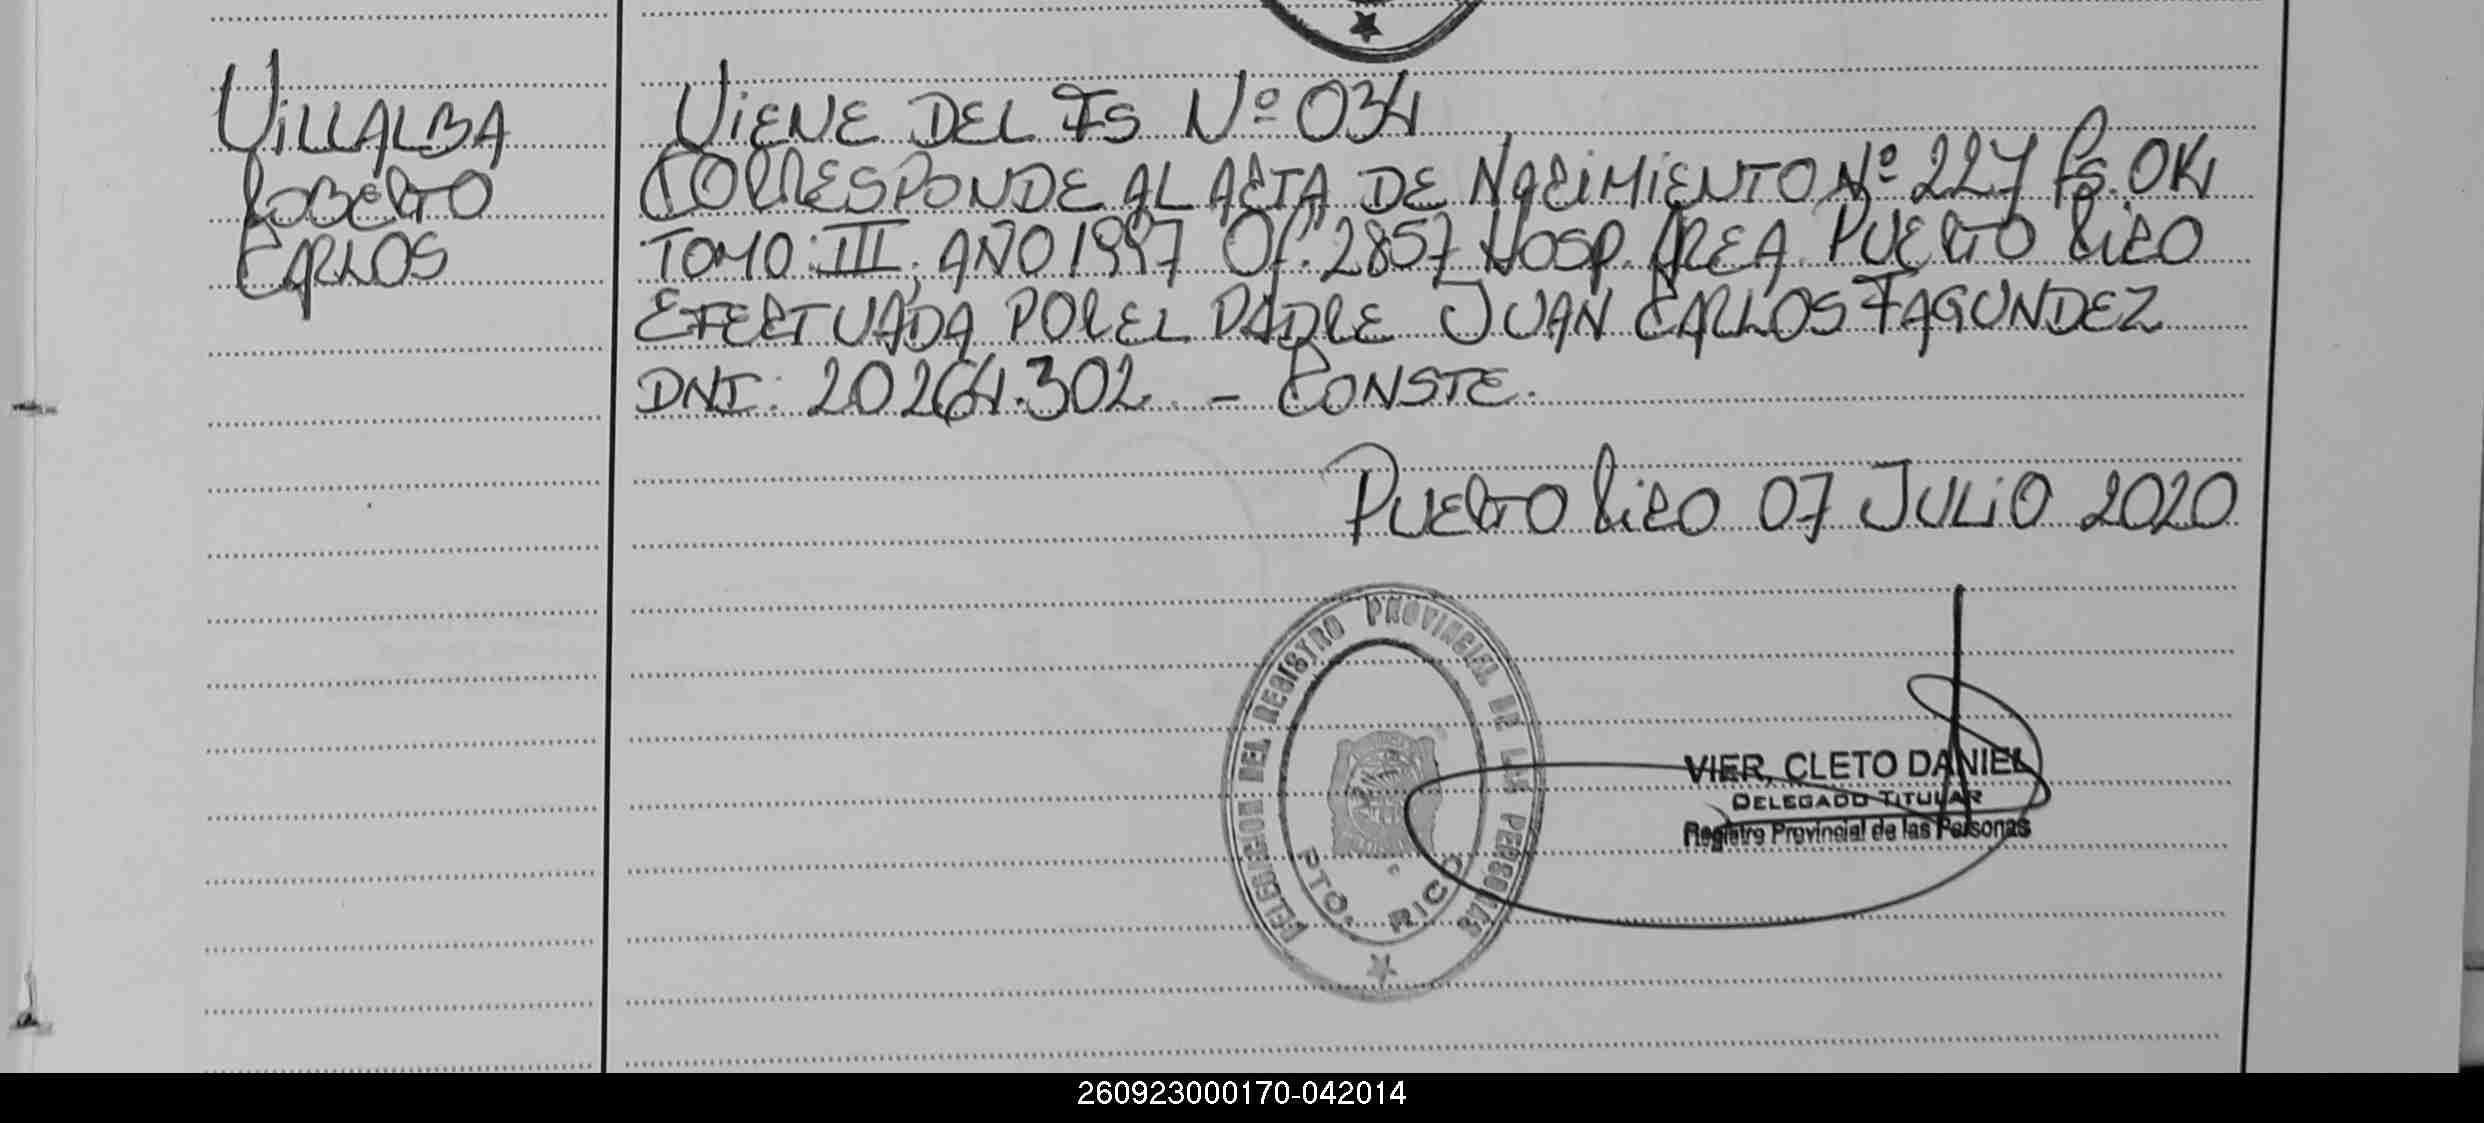 VILLALBA
ROBERTO
CARLOS
VIENE DEL FS Nº 034
CORRESPONDE AL ACTA DE NACIMIENTO Nº 227 Fs.
TOMO: III, AÑO 1997 Of. 2857 HOSP. AREA PUERTO RICO
EFECTUADA POR EL PADRE JUAN CARLOS FAGUNDEZ
DNI: 20264.302. - CONSTE.
PUERTO RICO 07 JULIO 2020
DELEGACION DEL REGISTRO PROVINCIAL DE LAS PERSONAS
PTO. RICO
VIER, CLETO DANIEL
DELEGADO TITULAR
Registro Provincial de las Personas
260923000170-042014